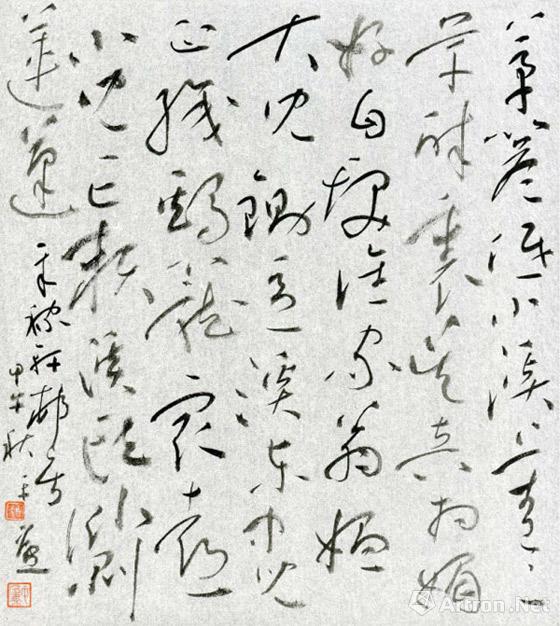 茅簷低小溪上青〻
草醉裏吴音相媚
好白髮誰家翁媪
大兒鋤豆溪东中兒
正織鷄籠最喜
小兒亡賴溪頭卧剥
蓮蓬
辛稼轩邨居
甲午秋
Artron.Net